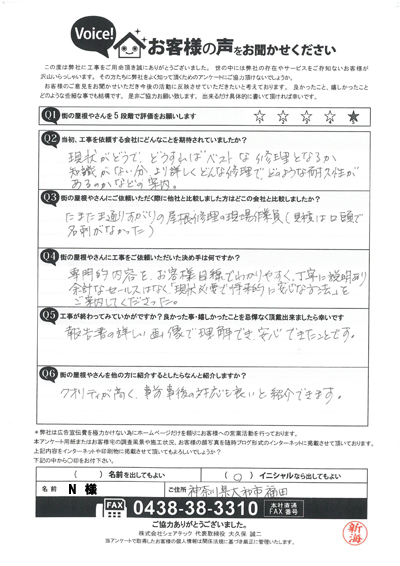 Voice!
お客様の声をお聞かせください
この度は弊社に工事をご用命頂き誠にありがとうございました。 世の中には弊社の存在やサービスをご存知ないお客様が
沢山いらっしゃいます。その方たちに弊社をよく知って頂くためのアンケートにご協力頂けないでしょうか。
お客様のご意見をお聞かせいただき今後の活動に反映させていただきたいと考えております。 良かったこと、嬉しかったこと
どのような些細な事でも結構です。 是非ご協力お願い致します。 出来るだけ具体的に書いて頂ければ幸いです。
Q1 街の屋根やさんを5段階で評価をお願いします ☆ ☆ ☆ ☆ ★
Q2 当初、工事を依頼する会社にどんなことを期待されていましたか?
現状がどうで、どうすればベストな修理となるか
知識がない分、より詳しくどんな修理でどのような耐久性が
あるのかなどの案内。
Q3 街の屋根やさんにご依頼いただく際に他社と比較しました方はどこの会社と比較しましたか?
たまたま通りすがりの屋根修理の現場作業員(見積は口頭で
名刺がなかった)
Q4 街の屋根やさんに工事をご依頼いただいた決め手は何ですか?
専門的内容を、お客様目線でわかりやすく、丁寧に説明あり
余計なセールスはなく「現状必要で将来的に安心な方法」を
ご案内してくださった。
Q5 工事が終わってみていかがですか?良かった事・嬉しかったことを忌憚なく頂戴出来ましたら幸いです
報告書の詳しい画像で理解でき、安心できたことです。
Q6 街の屋根やさんを他の方に紹介するとしたらなんと紹介しますか?
クオリティが高く、事前事後の対応も良いと紹介できます。
*弊社は広告宣伝費を極力かけない為にホームページだけを頼りにお客様への営業活動を行っております。
本アンケート用紙またはお客様宅の調査風景や施工状況、お客様の顔写真を随時ブログ形式のインターネットに掲載させて頂いております。
上記内容をインターネットや印刷物に掲載させて頂いてもよろしいでしょうか?
下記の中から〇印をお付下さい。
( )名前を出してもよい (○)イニシャルなら出してもよい
名前 N 様 ご住所 神奈川県大和市福田
FAX 0438-38-3310 本社直通 FAX番号
ご協力ありがとうございました。
株式会社シェアテック 代表取締役 大久保 誠二
当アンケートで取得したお客様の個人情報は関係法規に基づき厳正に管理いたします。
新海